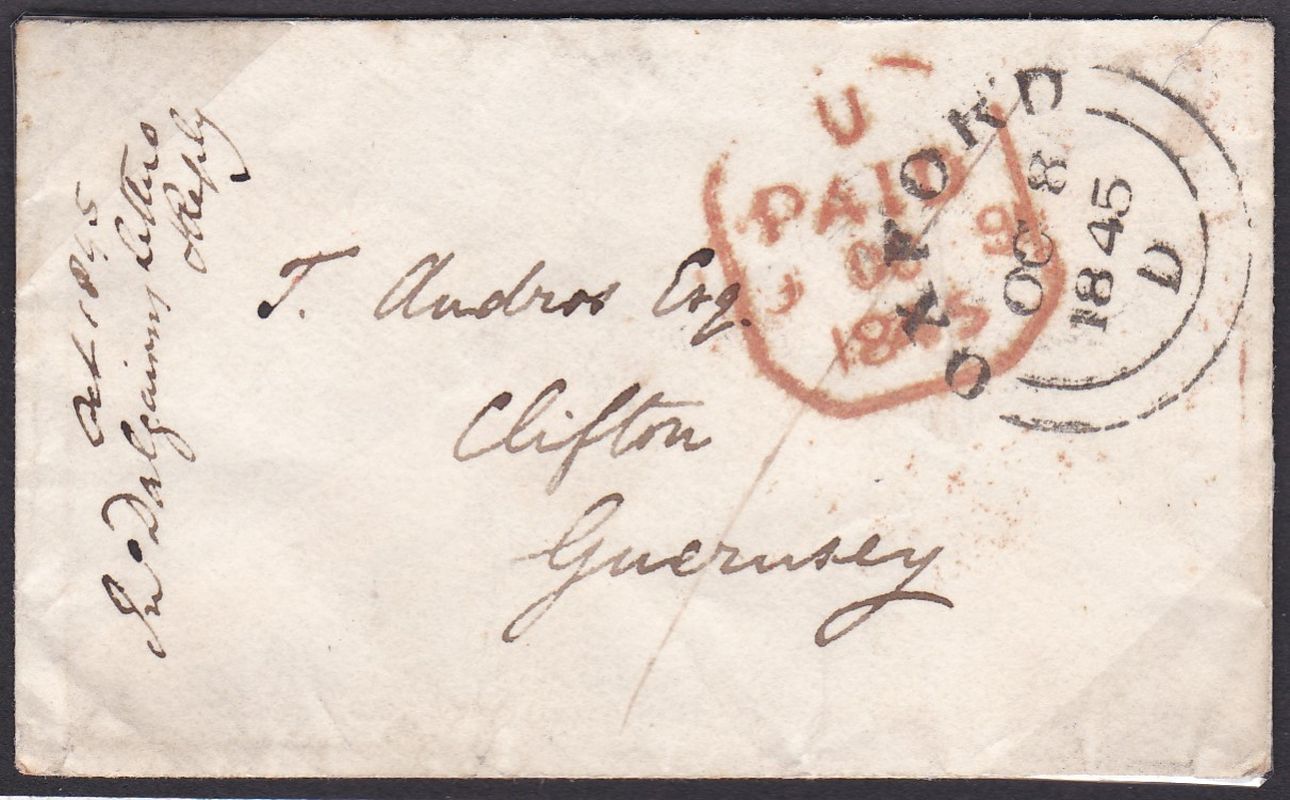 Oct 1845
Jno Dalgairns letters
& Reply
T. Andros Esq.
Clifton
Guernsey
U
PAID
OC 9
1845
OXFORD
OC 8
1845
D